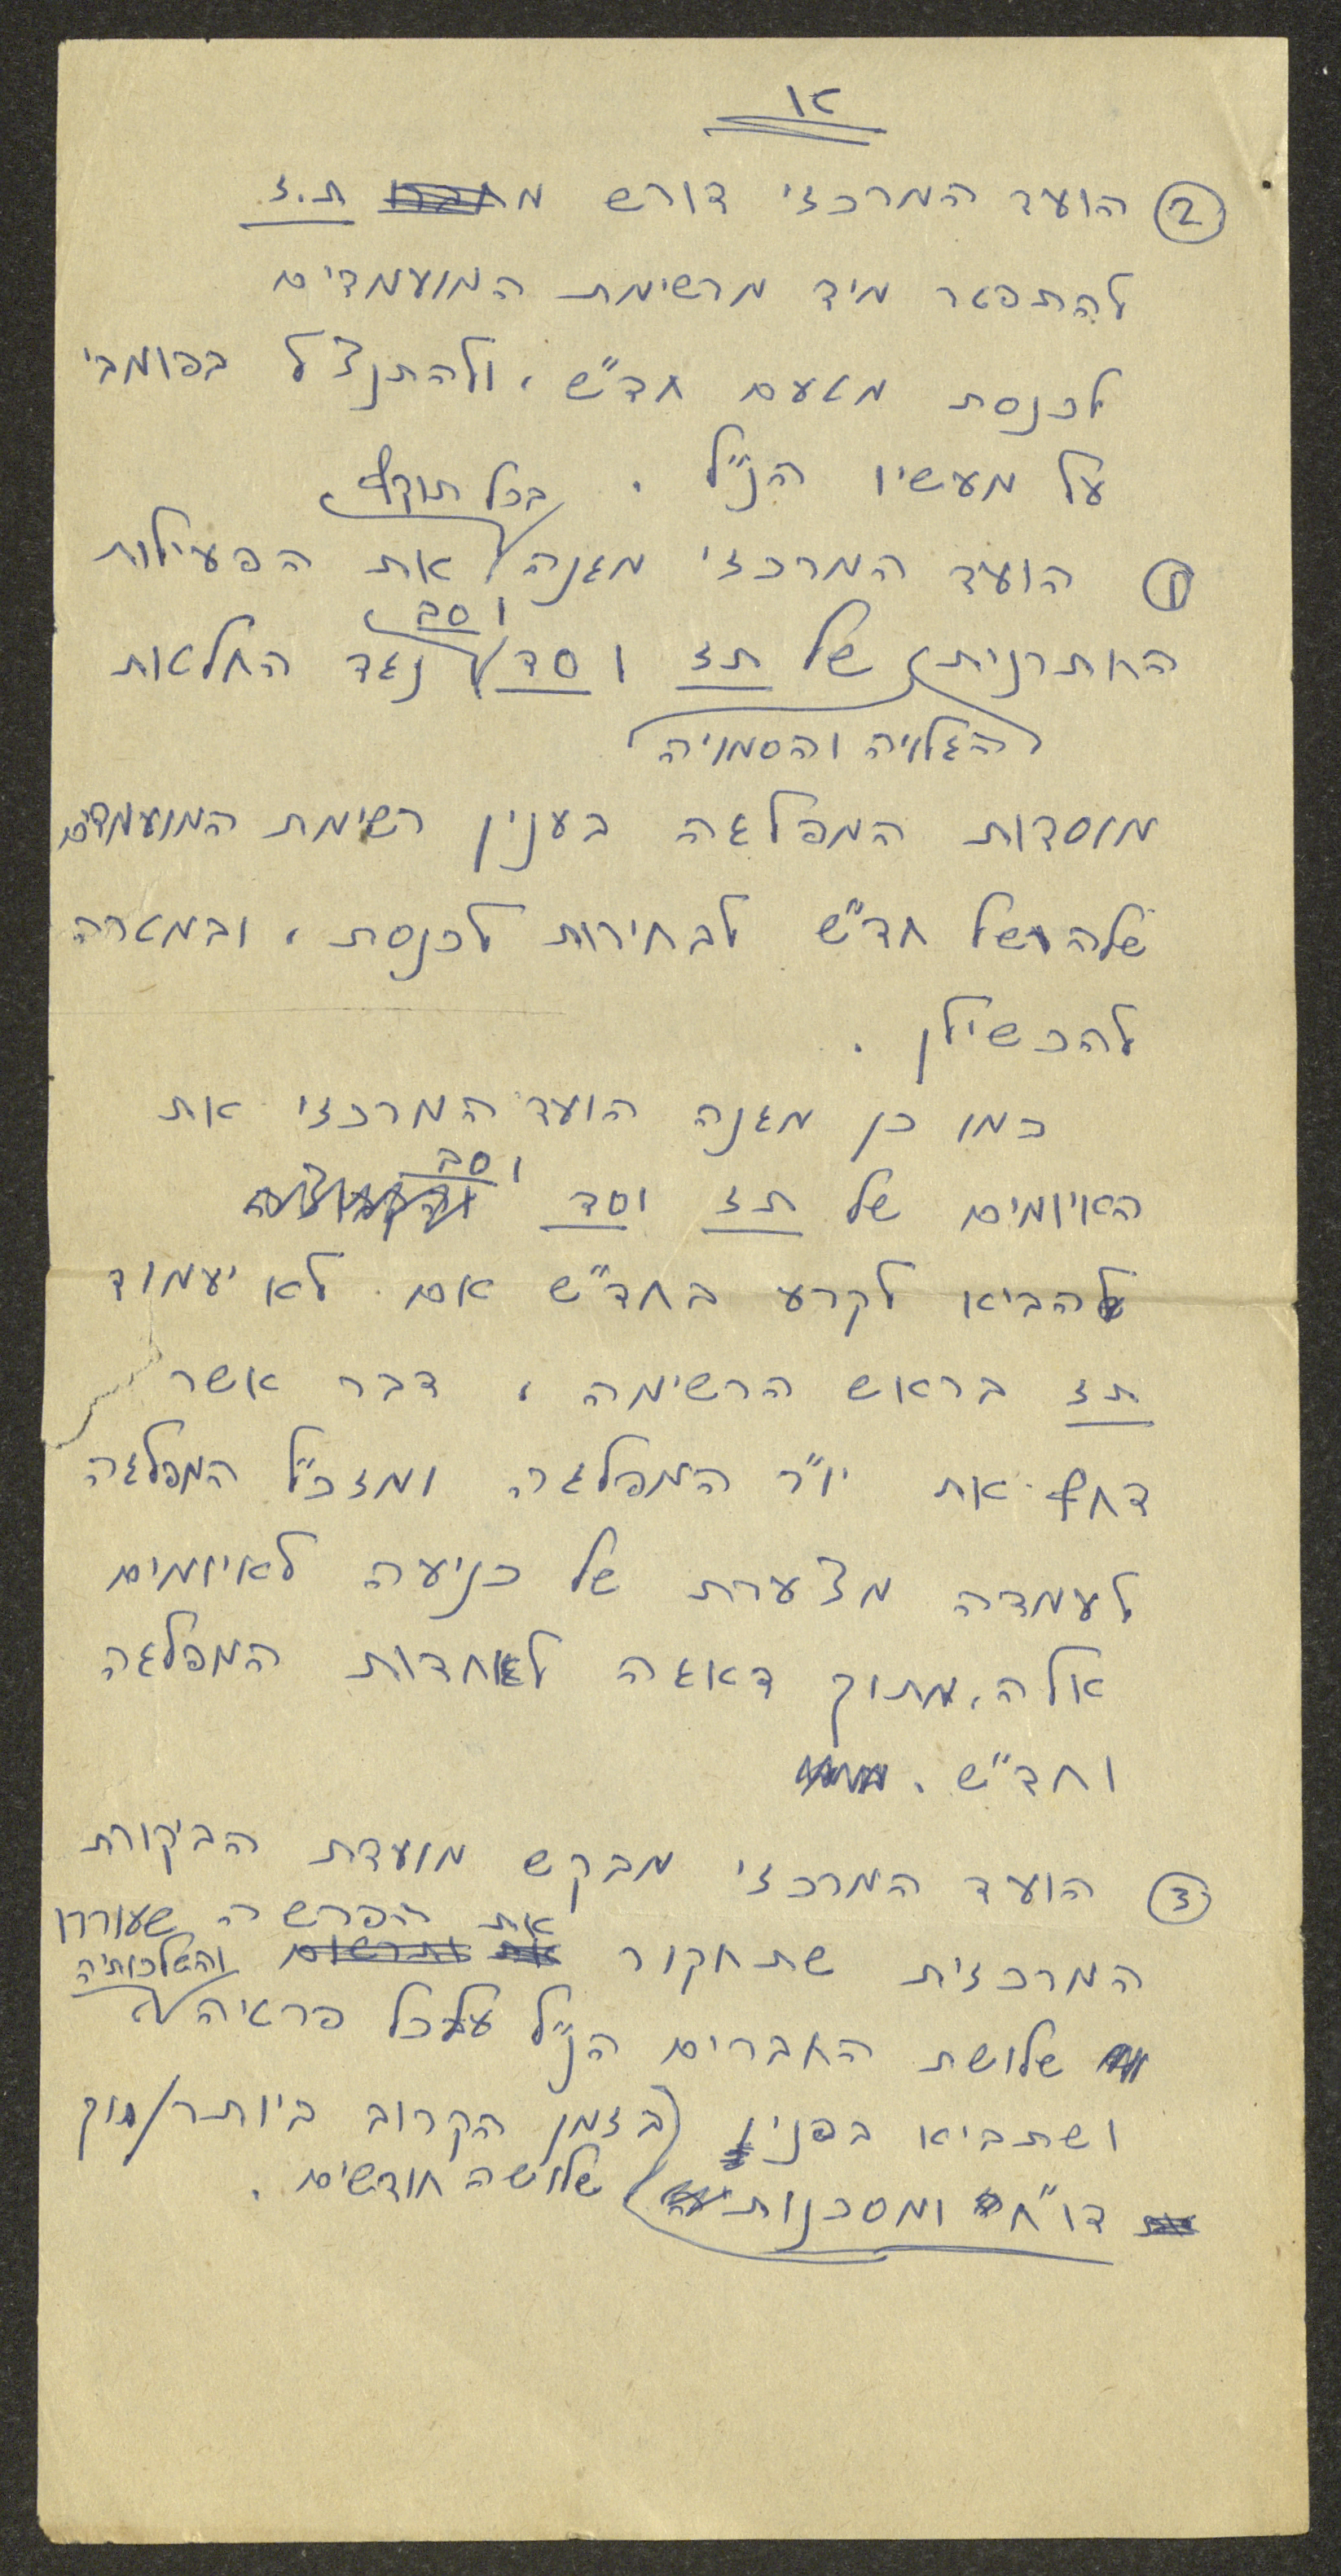 או
② הועד המרכזי דורש מחברו ת.ז.
להתפטר מיד מרשימת המועמדים
לכנסת מטעם חד״ש, ולהתנצל בפומבי
על מעשיו הנ״ל.
בכל תוקף
① הועד המרכזי מגנה את הפעילות
וסב
החתרנית של תז וסד נגד החלטות
הגלויה והסמויה
מוסדות המפלגה בענין רשימת המועמדים
שלה ושל חד״ש לבחירות לכנסת, ובמטרה
להכשילן.
כמו כן מגנה הועד המרכזי את
וסב
האיומים של תז וסד
להביא לקרע בחד״ש אם לא יעמוד
תז בראש הרשימה, דבר אשר
דחף את יו״ר המפלגה ומזכ״ל המפלגה
לעמדה מצערת של כניעה לאיומים
אלה, מתוך דאגה לאחדות המפלגה
וחד״ש.
③ הועד המרכזי מבקש מועדת הביקורת
את הפרשה שעוררו
המרכזית שתחקור את ותרשום והשלכותיה
שלושת החברים הנ״ל על כל פראיה
ושתביא בפניו (בזמן הקרוב ביותר/תוך
דו״ח ומסכנות שלושה חודשים.